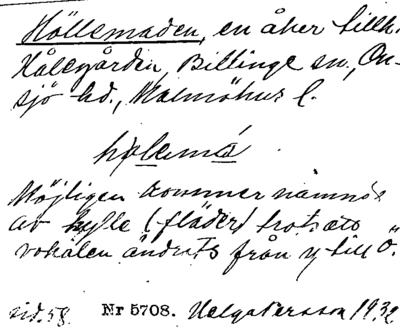 Höllemaden, en åker tillh.
Hålegården, Billinge sn, On-
sjö hd., Malmöhus l.
Möjligen kommer namnet
av hylle (fläder) trots att
vokalen ändrats från y till ö.
sid. 58. Nr 5708. Helga Persson 1932